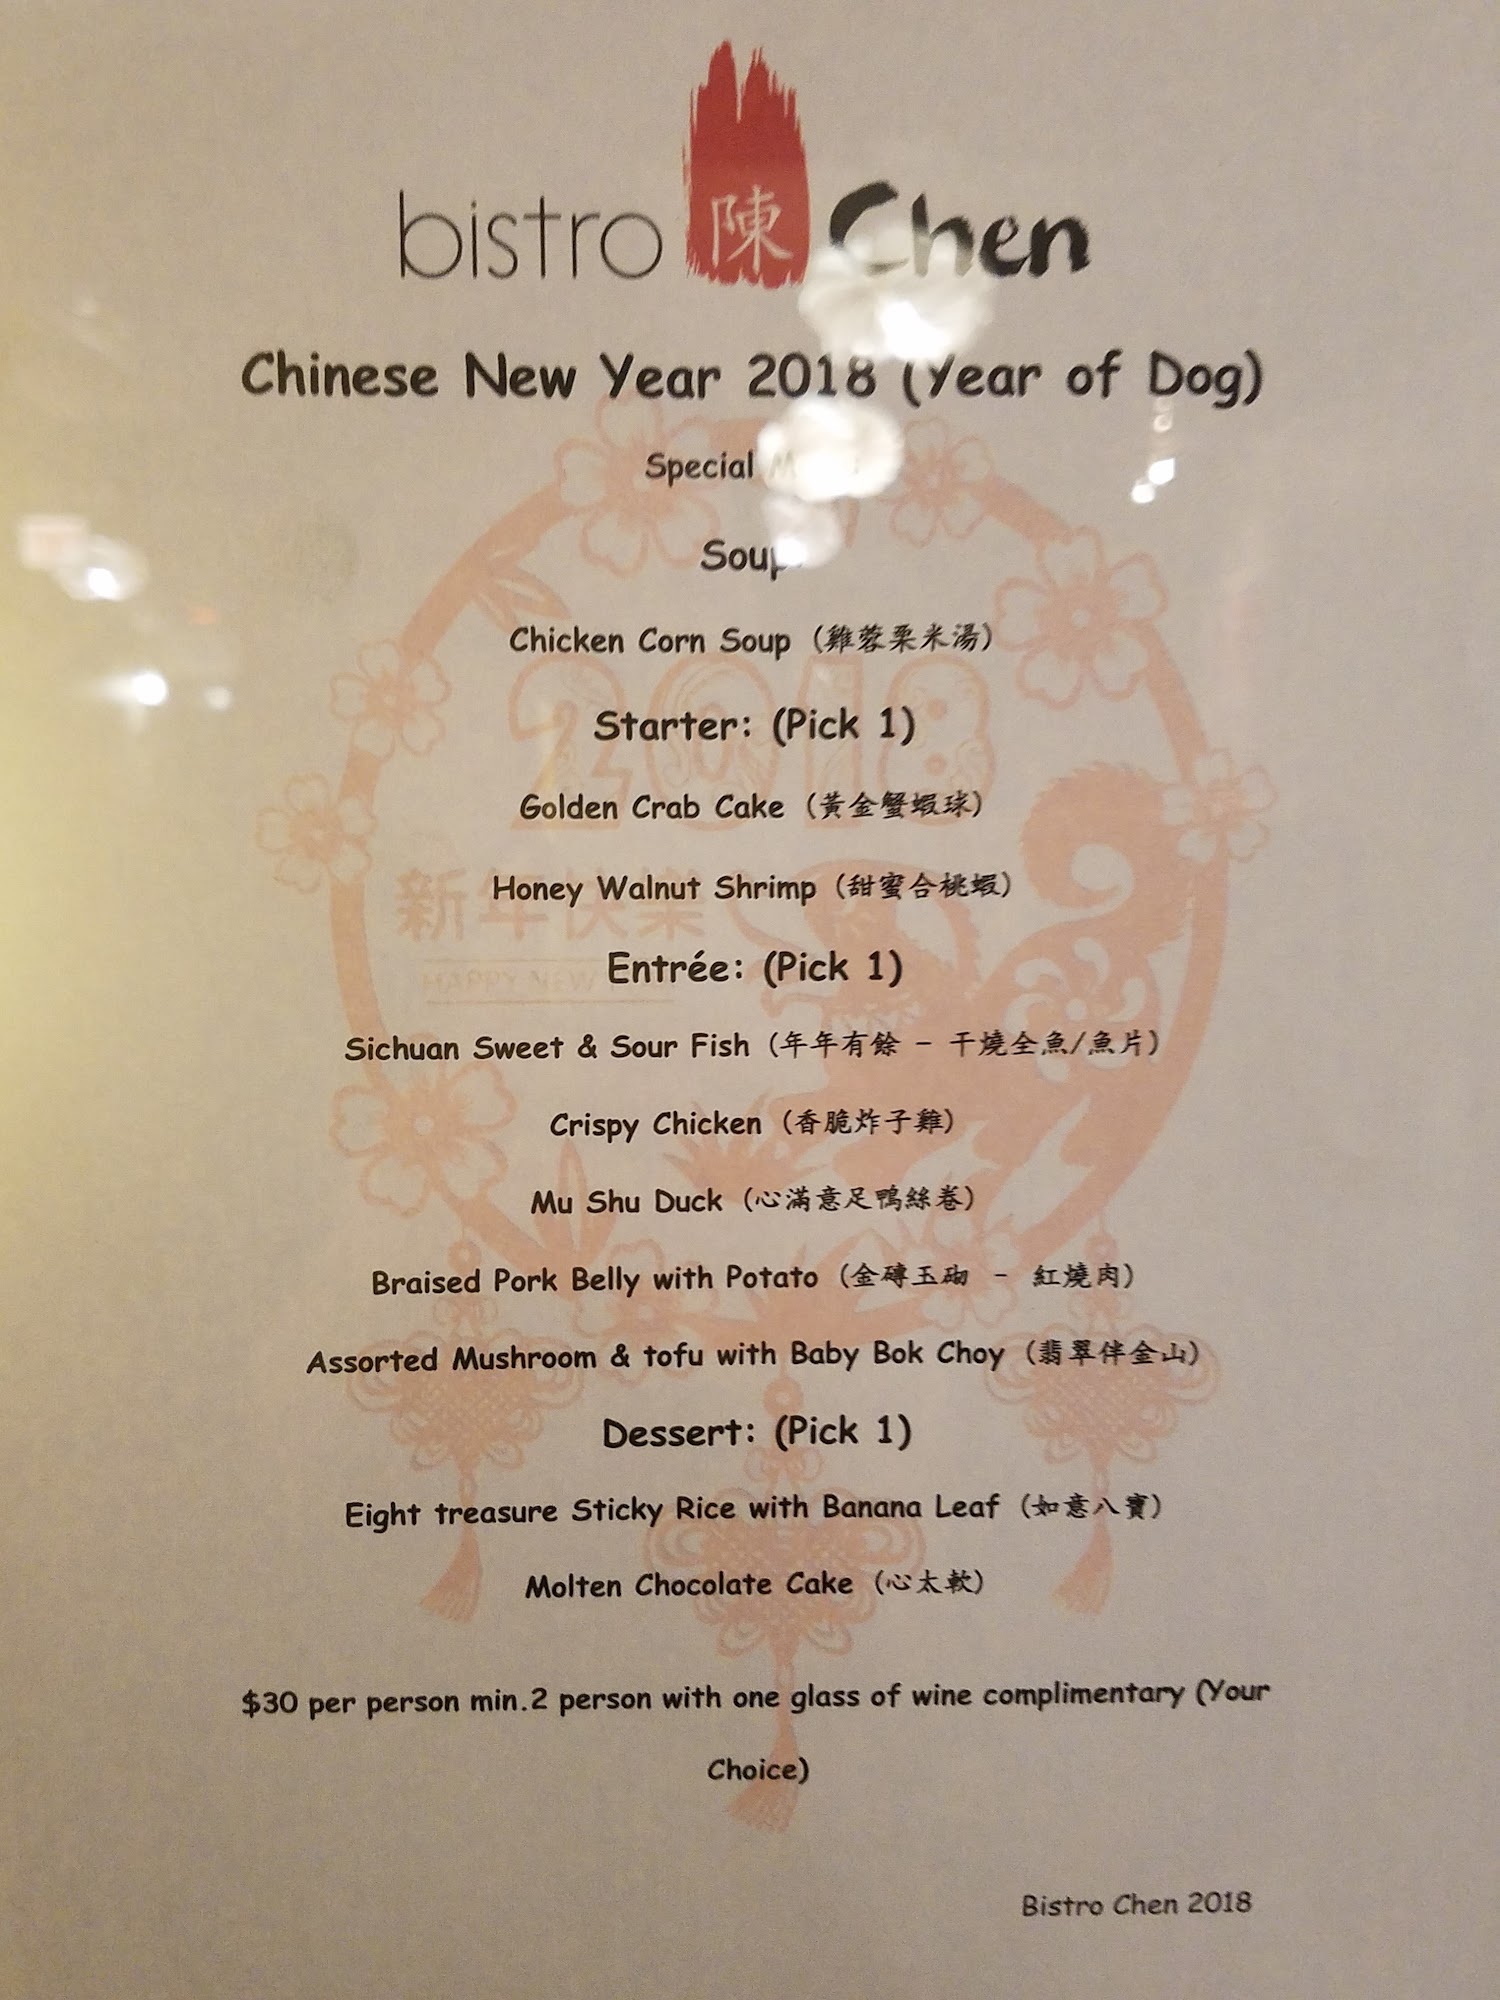 bistro 陳 Chen
Chinese New Year 2018 (Year of Dog)
Special
Soup
Chicken Corn Soup (雞蓉粟米湯)
2018
Starter: (Pick 1)
Golden Crab Cake (黃金蟹蝦球)
Honey Walnut Shrimp (甜蜜合桃蝦)
新年快樂
Entrée: (Pick 1)
HAPPY NEW
Sichuan Sweet & Sour Fish (年年有餘 - 干燒全魚/魚片)
Crispy Chicken (香脆炸子雞)
Mu Shu Duck (心滿意足鴨絲卷)
Braised Pork Belly with Potato (金磚玉砌 - 紅燒肉)
Assorted Mushroom & tofu with Baby Bok Choy (翡翠伴金山)
Dessert: (Pick 1)
Eight treasure Sticky Rice with Banana Leaf (如意八寶)
Molten Chocolate Cake (心太軟)
$30 per person min.2 person with one glass of wine complimentary (Your
Choice)
Bistro Chen 2018